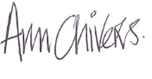 Ann Chivers.